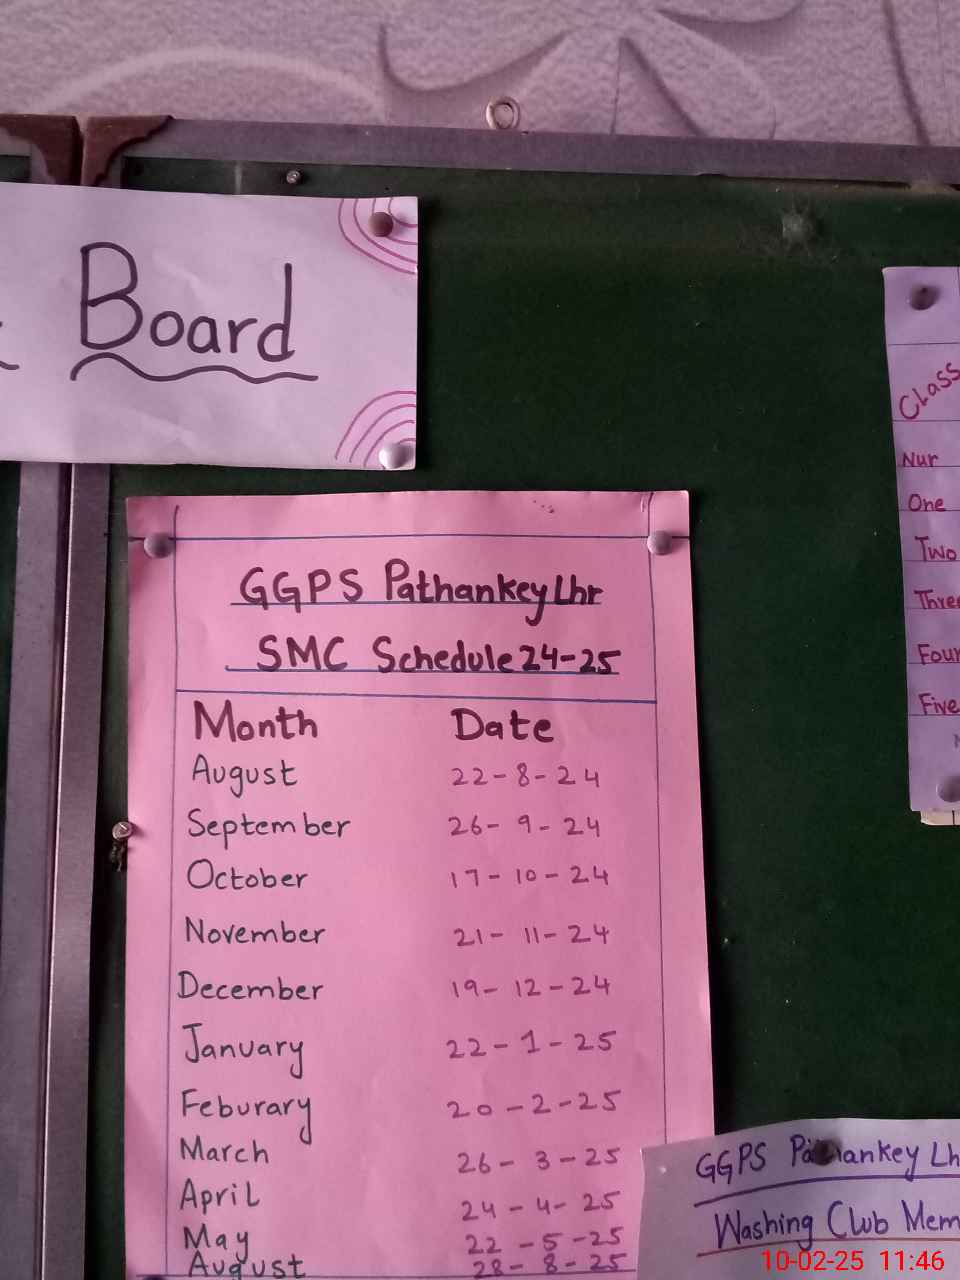 Board
GGPS Pathankey Lhr
SMC Schedule 24-25
Month Date
August 22-8-24
September 26-9-24
October 17-10-24
November 21-11-24
December 19-12-24
January 22-1-25
Feburary 20-2-25
March 26-3-25
April 24-4-25
May 22-5-25
August 28-8-25
Class
Nur
One
Two
Three
Four
Five
GGPS Pathankey Lh
Washing Club Mem
10-02-25 11:46